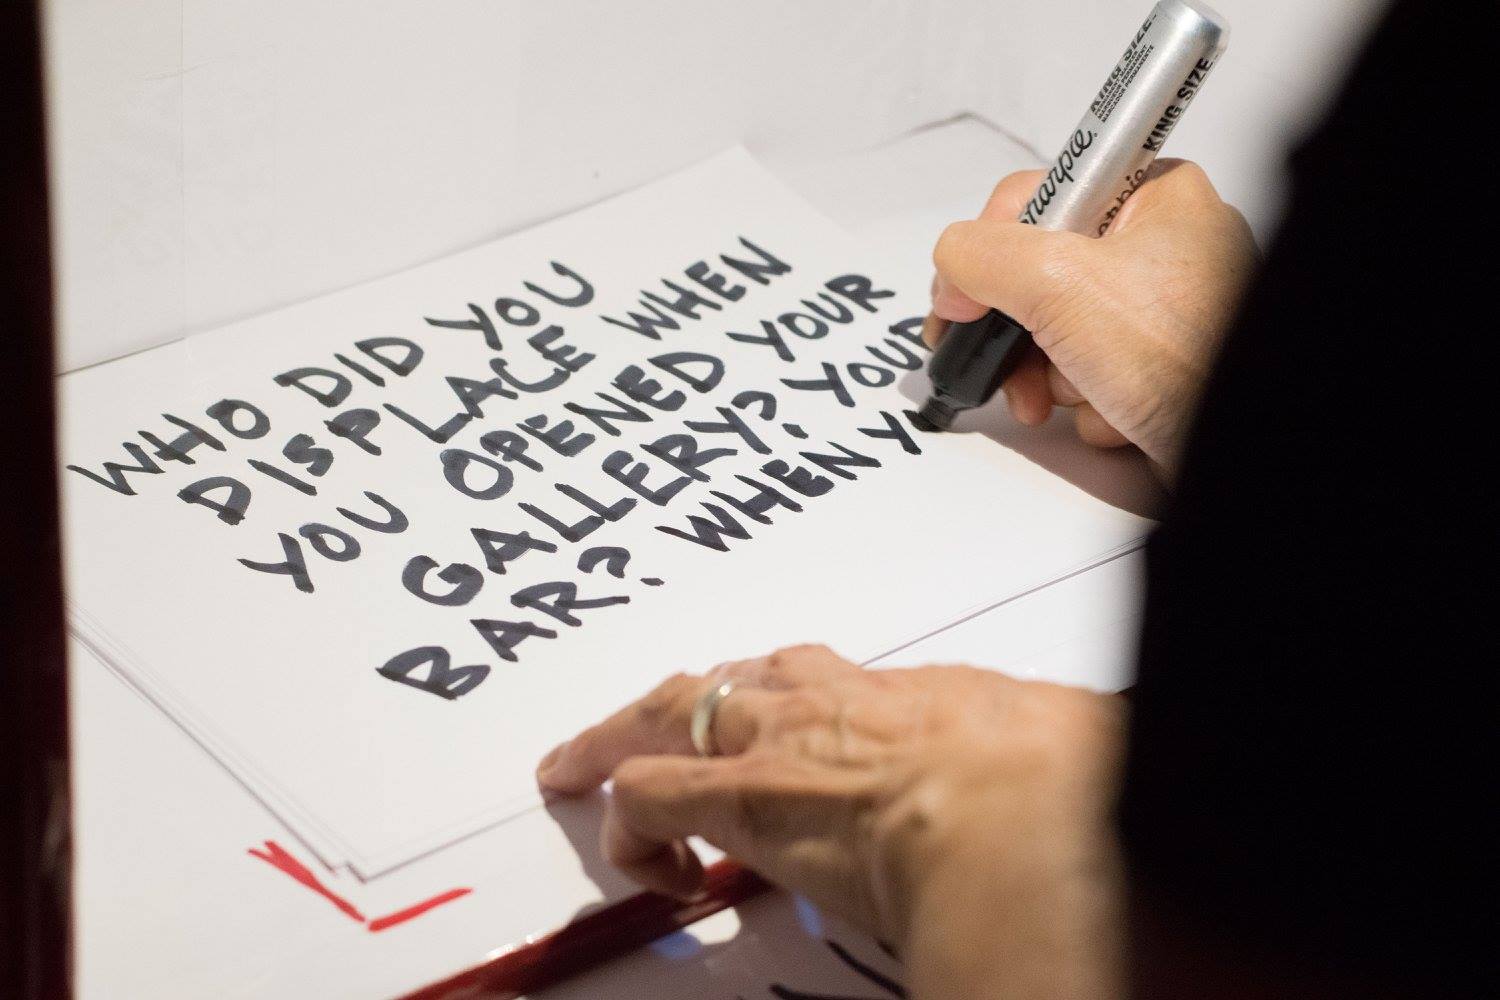 WHO DID YOU
DISPLACE WHEN
YOU OPENED YOUR
GALLERY? YOUR
BAR? WHEN Y
harpie.
KING SIZE
MARCADOR PERMANENTE
KING SIZE